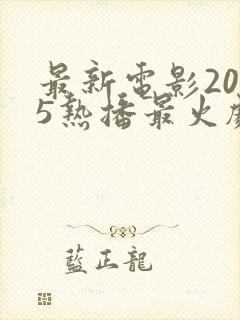 最新電影20
5熱播最火
藍正龍